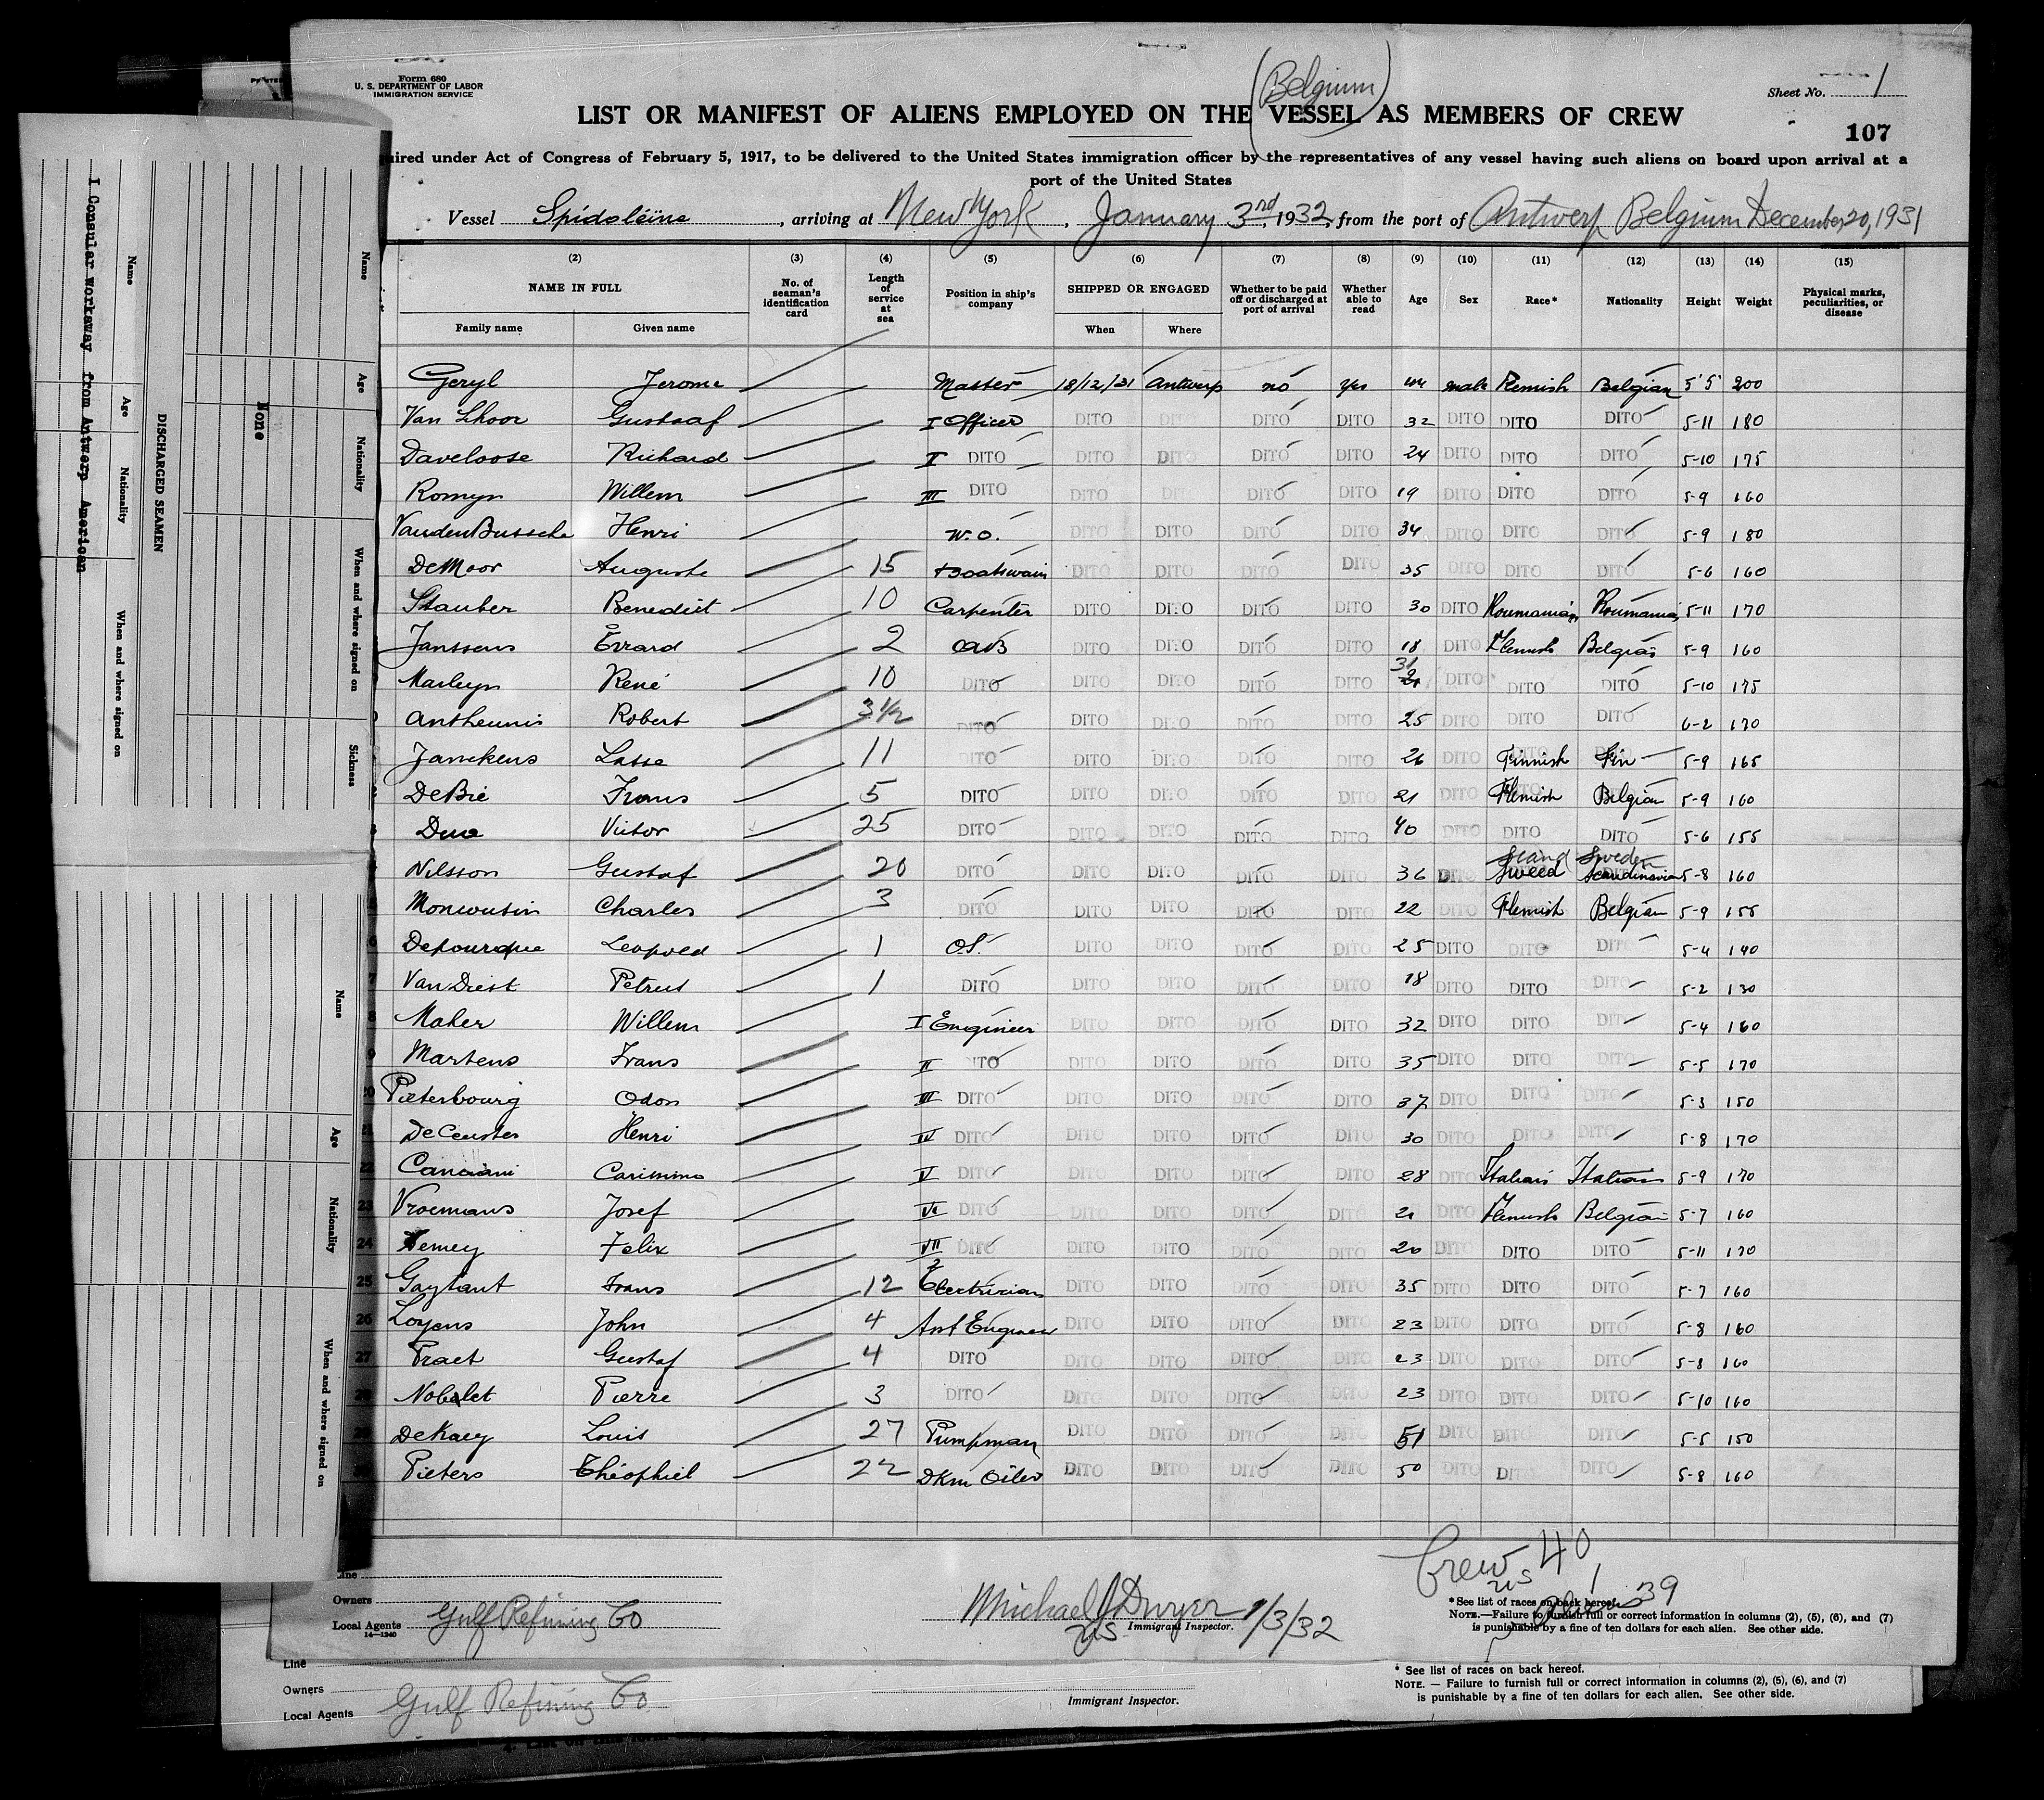 Form 680
U. S. DEPARTMENT OF LABOR
IMMIGRATION SERVICE
(Belgium)
Sheet No. 1
LIST OR MANIFEST OF ALIENS EMPLOYED ON THE VESSEL AS MEMBERS OF CREW
107
uired under Act of Congress of February 5, 1917, to be delivered to the United States immigration officer by the representatives of any vessel having such aliens on board upon arrival at a
port of the United States
Vessel Spidoléine, arriving at New York, January 3rd, 1932, from the port of Antwerp Belgium December 20, 1931
(2) (3) (4) (5) (6) (7) (8) (9) (10) (11) (12) (13) (14) (15)
NAME IN FULL No. of seaman's identification card Length of service at sea Position in ship's company SHIPPED OR ENGAGED Whether to be paid off or discharged at port of arrival Whether able to read Age Sex Race* Nationality Height Weight Physical marks, peculiarities, or disease
Family name Given name When Where
Geryl Jerome Master 18/12/31 Antwerp no yes 44 male Flemish Belgian 5'5' 200
Van Lhoor Gustaaf I Officer DITO DITO DITO DITO 32 DITO DITO DITO 5-11 180
Daveloose Richard II DITO DITO DITO DITO DITO 24 DITO DITO DITO 5-10 175
Romyn Willem III DITO DITO DITO DITO DITO 19 DITO DITO DITO 5-9 160
VandenBussche Henri W.O. DITO DITO DITO DITO 34 DITO DITO DITO 5-9 180
DeMoor Auguste 15 Boatswain DITO DITO DITO DITO 35 DITO DITO DITO 5-6 160
Stauber Benedict 10 Carpenter DITO DITO DITO DITO 30 DITO Roumanian Roumanian 5-11 170
Janssens Evrard 2 OAB DITO DITO DITO DITO 18 DITO Flemish Belgian 5-9 160
Marleyn René 10 DITO DITO DITO DITO DITO 31 DITO DITO DITO 5-10 175
Antheunis Robert 3½ DITO DITO DITO DITO DITO 25 DITO DITO DITO 6-2 170
Janckens Lasse 11 DITO DITO DITO DITO DITO 26 DITO Finnish Fin 5-9 165
DeBie Frans 5 DITO DITO DITO DITO DITO 21 DITO Flemish Belgian 5-9 160
Victor 25 DITO DITO DITO DITO DITO 40 DITO DITO DITO 5-6 155
Nilsson Gustaf 20 DITO DITO DITO DITO DITO 36 DITO Scand Sweed Sweden Scandinavian 5-8 160
Charles 3 DITO DITO DITO DITO DITO 22 DITO Flemish Belgian 5-9 155
Depourque Leopold 1 O.S. DITO DITO DITO DITO 25 DITO DITO DITO 5-4 140
VanDiest Petrus 1 DITO DITO DITO DITO DITO 18 DITO DITO DITO 5-2 130
Maher Willem I Engineer DITO DITO DITO DITO 32 DITO DITO DITO 5-4 160
Martens Frans II DITO DITO DITO DITO DITO 35 DITO DITO DITO 5-5 170
Pieterbourg Odon III DITO DITO DITO DITO DITO 37 DITO DITO DITO 5-3 150
DeCeuster Henri IV DITO DITO DITO DITO DITO 30 DITO DITO DITO 5-8 170
22 Canciani Carissimo V DITO DITO DITO DITO DITO 28 DITO Italian Italian 5-9 170
23 Vroemans Josef VI DITO DITO DITO DITO DITO 21 DITO Flemish Belgian 5-7 160
24 Temey Felix VII DITO DITO DITO DITO DITO 20 DITO DITO DITO 5-11 170
25 Gaytant Frans 12 Electrician DITO DITO DITO DITO 35 DITO DITO DITO 5-7 160
26 Loyens John 4 Ast Engineer DITO DITO DITO DITO 23 DITO DITO DITO 5-8 160
27 Praet Gustaf 4 DITO DITO DITO DITO DITO 23 DITO DITO DITO 5-8 160
28 Nobelet Pierre 3 DITO DITO DITO DITO DITO 23 DITO DITO DITO 5-10 160
29 DeKaey Louis 27 Pumpman DITO DITO DITO DITO 51 DITO DITO DITO 5-5 150
Pieters Théophiel 22 DKm Oiler DITO DITO DITO DITO 50 DITO DITO DITO 5-8 160
Crew 40
US 1
Aliens 39
Line
Owners
Local Agents Gulf Refining Co
14—1240
Michael J Dwyer 1/3/32
US Immigrant Inspector.
*See list of races on back hereof.
NOTE.—Failure to furnish full or correct information in columns (2), (5), (6), and (7)
is punishable by a fine of ten dollars for each alien. See other side.
Line
Owners
Local Agents Gulf Refining Co
Immigrant Inspector.
* See list of races on back hereof.
NOTE. — Failure to furnish full or correct information in columns (2), (5), (6), and (7)
is punishable by a fine of ten dollars for each alien. See other side.
I Consular Workaway from Antwerp American
Name Age Nationality When and where signed on
DISCHARGED SEAMEN
None
Name Age Nationality When and where signed on Sickness
Name Age Nationality When and where signed on